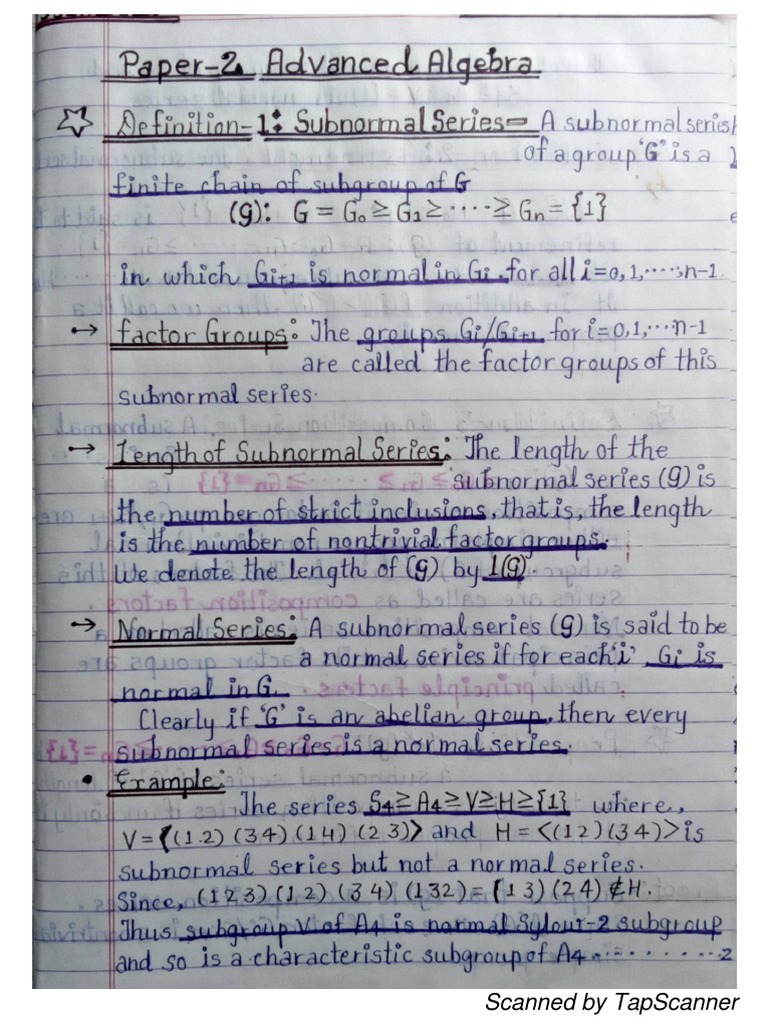 Paper-2. Advanced Algebra
Definition-1: Subnormal Series- A subnormal series
of a group 'G' is a
finite chain of subgroup of G
(g): G = G₀ ≥ G₁ ≥ ····· ≥ Gn = {1}
in which Gi+1 is normal in Gi for all i=0,1,····,n-1
→ factor Groups: The groups Gi/Gi+1 for i=0,1,···n-1
are called the factor groups of this
subnormal series.
→ Length of Subnormal Series: The length of the
subnormal series (g) is
the number of strict inclusions, that is, the length
is the number of nontrivial factor groups.
We denote the length of (g) by l(g).
→ Normal Series: A subnormal series (g) is said to be
a normal series if for each 'i' Gi is
normal in G.
Clearly if 'G' is an abelian group, then every
subnormal series is a normal series.
• Example:
The series S₄≥A₄≥V≥H≥{1} where,
V = ⟨(1 2) (3 4) (1 4) (2 3)⟩ and H = <(1 2) (3 4)> is
subnormal series but not a normal series.
Since, (1 2 3) (1 2) (3 4) (1 3 2) = (1 3) (2 4) ∉ H.
Thus subgroup V of A₄ is normal Sylour-2 subgroup
and so is a characteristic subgroup of A₄ ·········2
Scanned by TapScanner